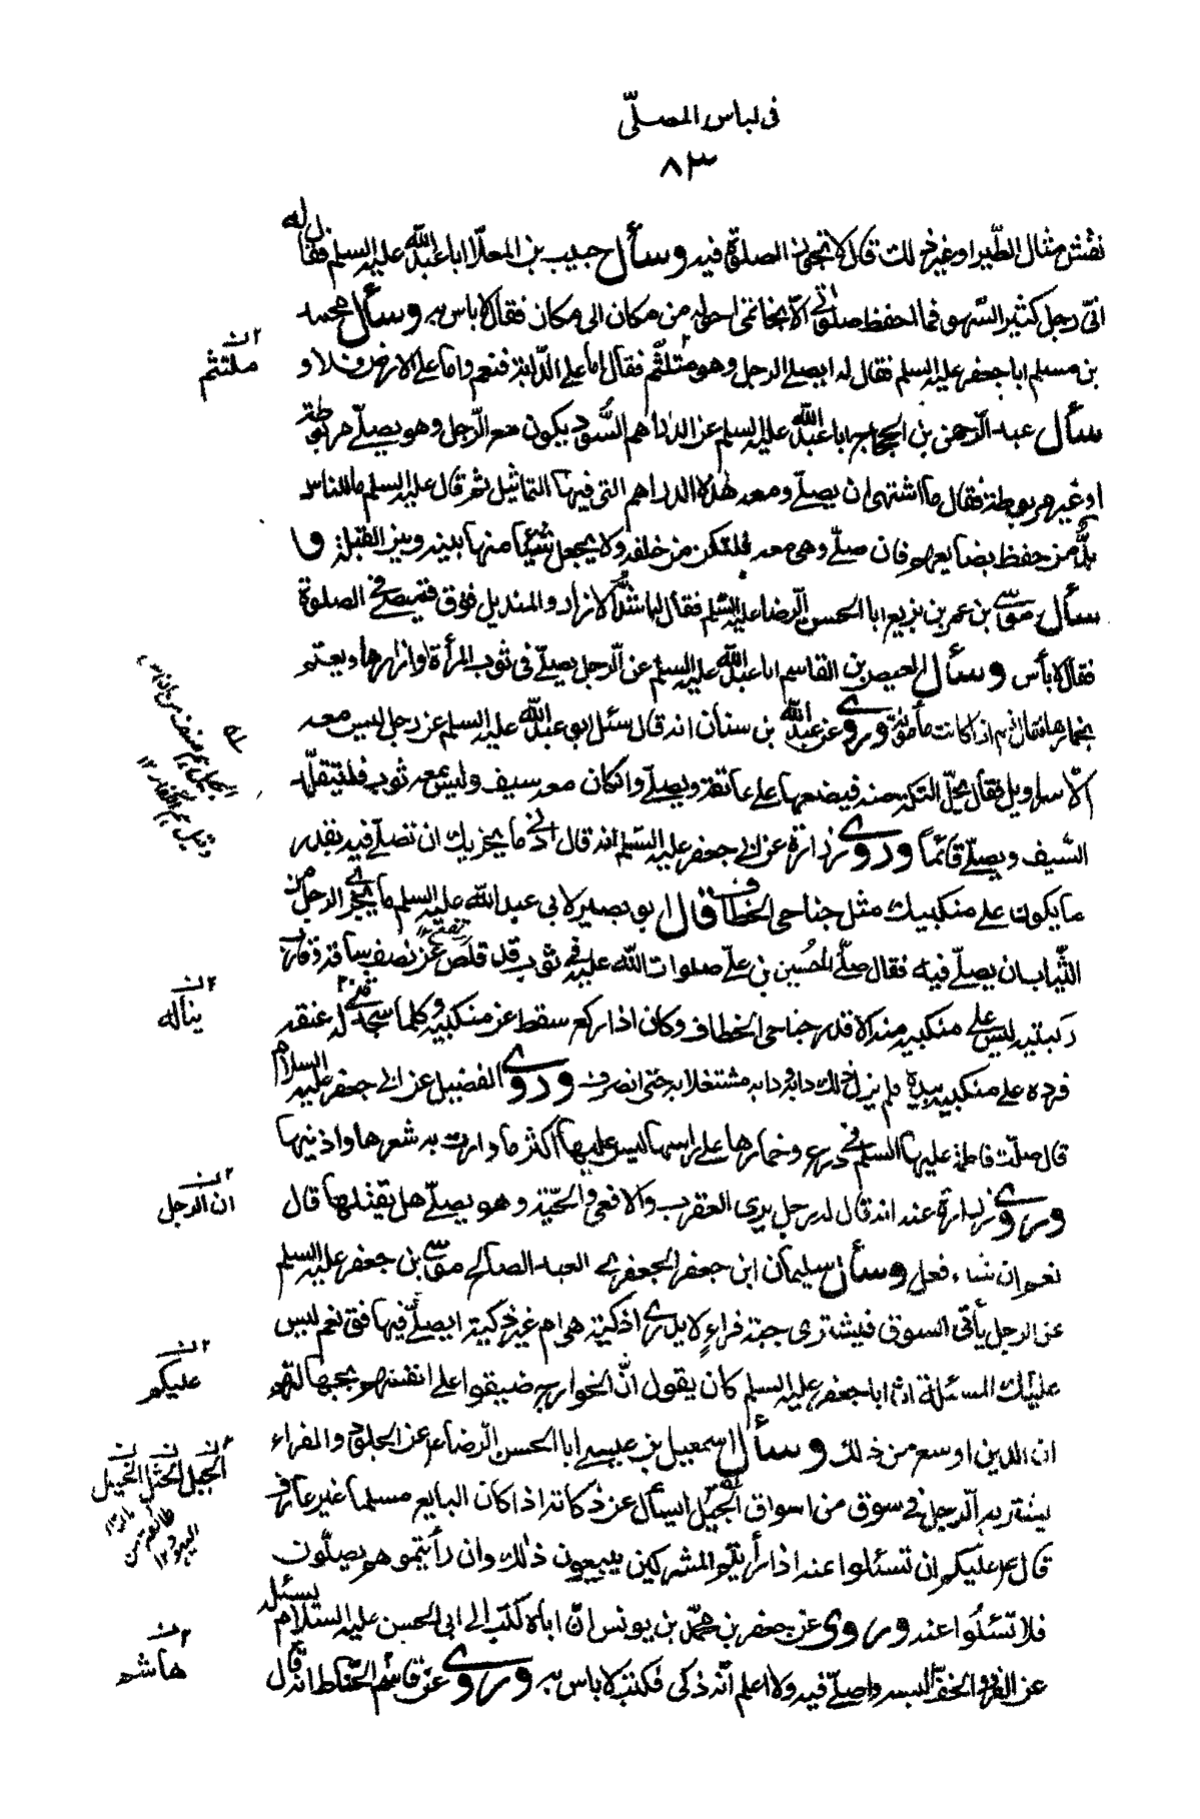 فى لباس المصلّى
٨٣
نقش مثال الطّير او غير ذلك قال لا تجوز الصلوة فيه وسأل حبيب بن المعلّا ابا عبد الله عليه السلم فقال له
انّى رجل كثير السّهو فما احفظ صلوتى الّا بخاتمى احوله من مكان الى مكان فقال لا باس به وسأل محمد
بن مسلم ابا جعفر عليه السلم فقال له ايصلى الرجل وهو متلثّم فقال اما على الدّابة فنعم واما على الارض فلا و
ملتثم
سأل عبد الرّحمن بن الحجاج ابا عبد الله عليه السلم عن الدراهم السُّود يكون مع الرّجل وهو يصلّى مربوطة
او غير مربوطة فقال ما اشتهى ان يصلّى ومعه هذه الدراهم التى فيها التماثيل ثم قال عليه السلم ما للناس
بُدٌّ من حفظ بضايعهم فان صلّى وهى معه فلتكن من خلفه ولا يجعل شيئا منها بينه وبين القبلة و
سأل موسى بن عمر بن بزيع ابا الحسن الرّضا عليه السّلم فقال له اشدُّ الازار والمنديل فوق قميصى فى الصلوة
فقال لا بأس وسأل العيص بن القاسم ابا عبد الله عليه السلم عن الرّجل يصلّى فى ثوب المرأة او ازارها ويعتم
بخمارها فقال نعم اذا كانت مأمونة وروى عن عبد الله بن سنان انه قال سئل ابو عبد الله عليه السلم عن رجل ليس معه
الّا سراويل فقال يحلّ التكة منه فيضعها على عاتقه ويصلّى وان كان معه سيف وليس معه ثوب فليتقلّد
السّيف ويصلّى قائماً وروى زرارة عن ابى جعفر عليه السّلم انه قال ادنى ما يجزيك ان تصلّى فيه بقدر
ما يكون على منكبيك مثل جناحى الخطاف وقال ابو بصير لابى عبد الله عليه السلم ما يجزى الرجل من
الثّياب ان يصلّى فيه فقال صلّى الحسين بن علىّ صلوات الله عليه فى ثوب قد قلّص عن نصف ساقه وقارب
ركبتيه ليس على منكبيه منه الا قدر جناحى الخطاف وكان اذا ركع سقط عن منكبيه وكلما سجد له عنقه
يناله
فرده على منكبيه بيده فلم يزل ذلك دابه ودابه مشتغلا به حتى انصرف وروى الفضيل عن ابى جعفر عليه السلام
قال صلّت فاطمة عليها السلم فى درع وخمارها على راسها ليس عليها اكثر ما وارت به شعرها واذنيها
وروى زرارة عنه انه قال له رجل يرى العقرب والافعى والحيّة وهو يصلّى هل يقتلها قال
ان الرجل
نعم ان شاء فعل وسأل سليمان ابن جعفر الجعفرى العبد الصالح موسى بن جعفر عليه السلم
عن الرجل يأتى السوق فيشترى جبة فراءٍ لا يدرى اذكية هى ام غير ذكية ايصلّى فيها فقال نعم ليس
عليك المسئلة ان ابا جعفر عليه السلم كان يقول انّ الخوارج ضيقوا على انفسهم بجهالتهم
عليكم
ان الدين اوسع من ذلك وسأل اسمعيل بن عيسى ابا الحسن الرّضا ع عن الجلود والفراء
يشتريه الرّجل فى سوق من اسواق الجبل ايسأل عن ذكاته اذا كان البايع مسلما غير عارف
الجبل الختل الخيل
قال ع عليكم ان تسئلوا عنه اذا رأيتم المشركين يبيعون ذلك وان رأيتموهم يصلّون
فلا تسئلوا عنه وروى عن جعفر بن محمّد بن يونس انّ اباه كتب الى ابى الحسن عليه السّلام يسئله
عن الفرو والخفّ البسه واصلّى فيه ولا اعلم انّه ذكى فكتب لا باس به وروى عن قاسم الخيّاط انه قال
هاشم